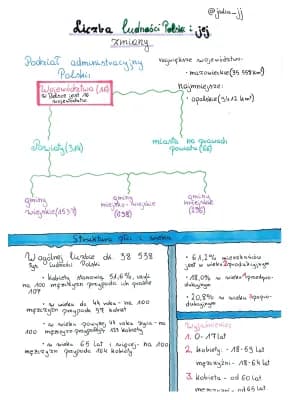 @julia_jj
Liczba ludności Polski i jej
zmiany
Podział administracyjny
Polski:
największe województwo:
• mazowieckie (35 559 km²)
Najmniejsze:
• opolskie (9412 km²)
Województwa (16)
w Polsce jest 16
województw
Powiaty (314)
miasta na prawach
powiatu (66)
gminy
wiejskie (1537)
gminy
miejsko-wiejskie
gminy
miejskie
Struktura płci i wieku
W ogólnej liczbie ok. 38 538
tyś ludności Polski
• kobiety stanowią 51,6%, czyli
na 100 mężczyzn przypada ich prawie
107
• w wieku do 44 roku - na 100
mężczyzn przypada 97 kobiet
• w wieku powyżej 44 roku życia - na
100 mężczyzn przypada kobiety
• w wieku 65 lat i więcej - na 100
mężczyzn przypada 164 kobiety
• 61,2% mieszkańców
jest w wieku 2produkcyjnym
• 18,0% w wieku 1przedpro-
dukcyjnym
• 20,8% w wieku 3popro-
dukcyjnym
Wyjaśnienie:
1. 0-17 lat
2. kobiety: - 18-59 lat
mężczyźni: - 18-64 lat
3. kobieta - od 60 lat
mężczyzna - od 65 lat